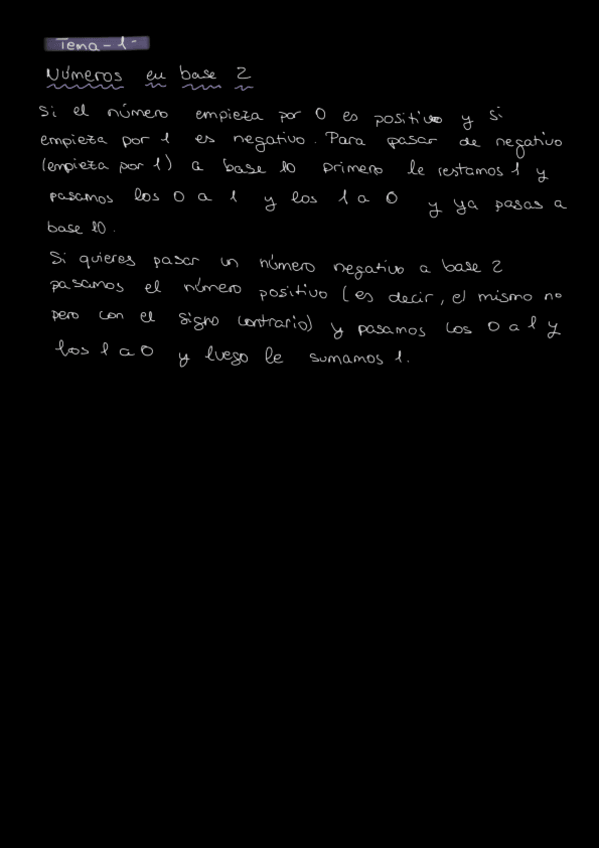 Tema-1-
Números en base 2
Si el número empieza por 0 es positivo y si
empieza por 1 es negativo. Para pasar de negativo
(empieza por 1) a base 10 primero le restamos 1 y
pasamos los 0 a 1 y los 1 a 0 y ya pasas a
base 10.
Si quieres pasar un número negativo a base 2
pasamos el número positivo (es decir, el mismo no
pero con el signo contrario) y pasamos los 0 a 1 y
los 1 a 0 y luego le sumamos 1.